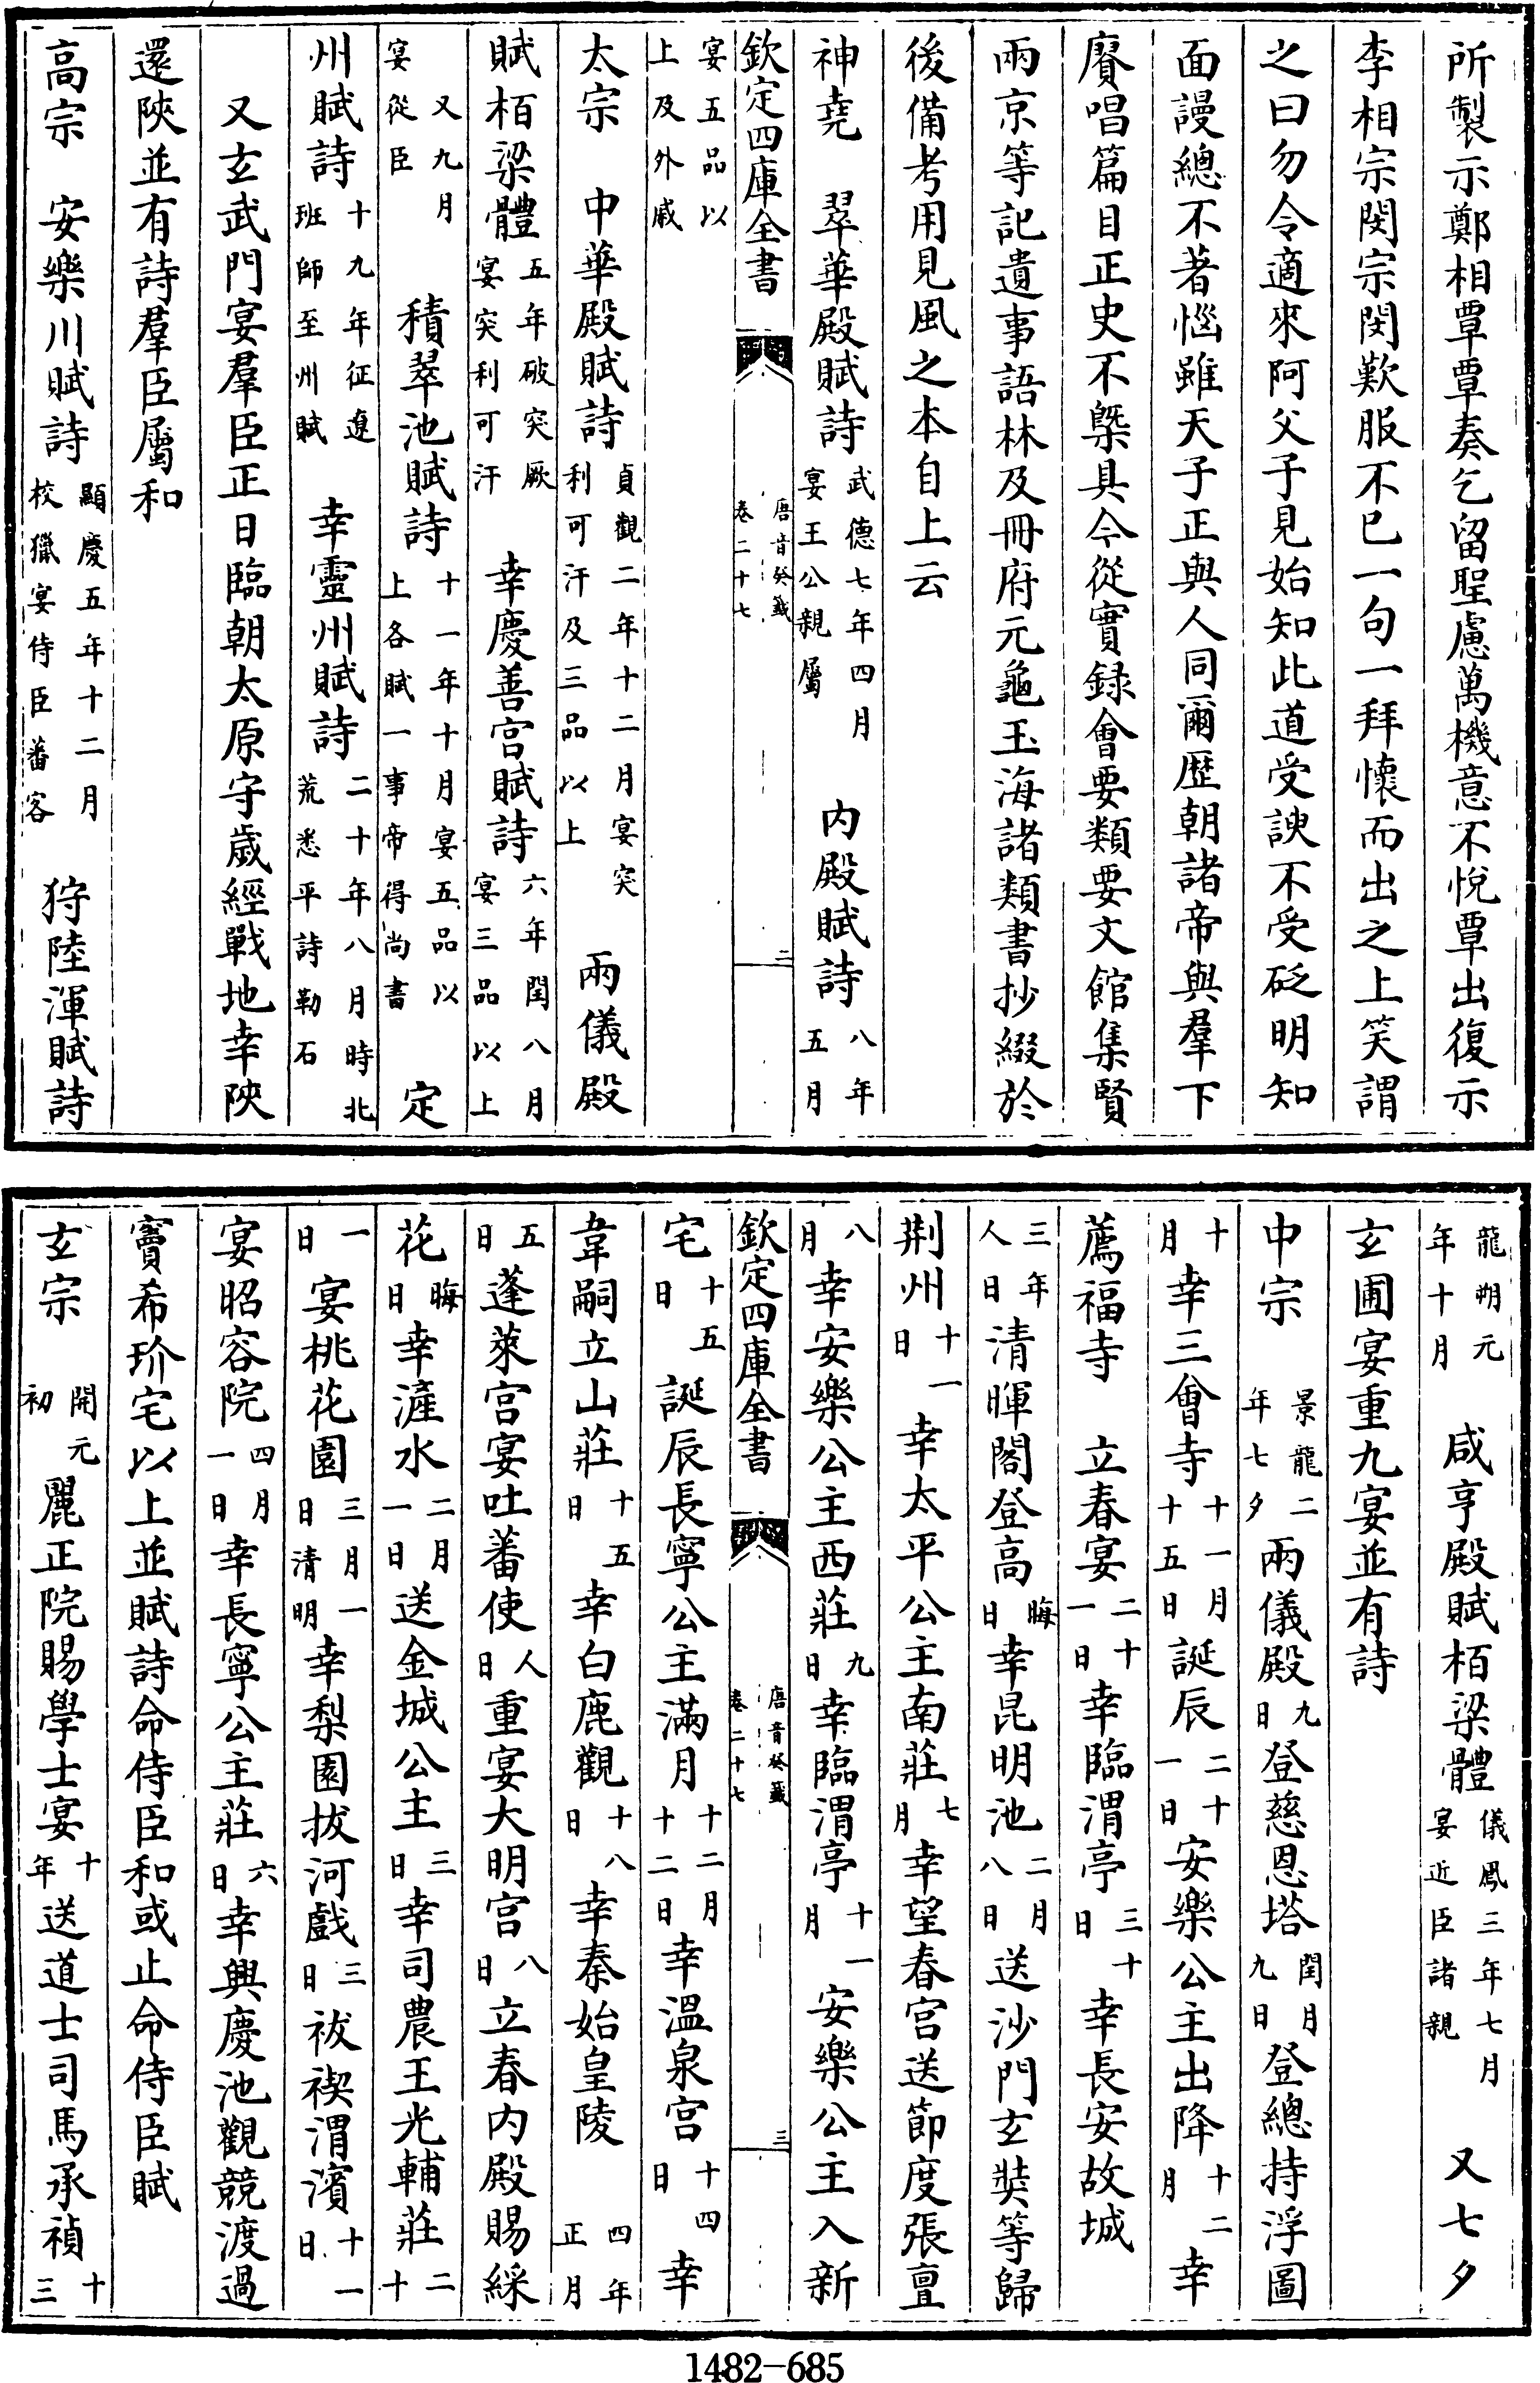 所製示鄭相覃覃奏乞留聖慮萬機意不悅覃出復示
李相宗閔宗閔歎服不已一句一拜懷而出之上笑謂
之曰勿令適來阿父子見始知此道受諛不受砭明知
面謾總不著惱雖天子正與人同爾歴朝諸帝與羣下
賡唱篇目正史不槩具今從實録會要類要文館集賢
兩京等記遺事語林及冊府元龜玉海諸類書抄綴於
後備考用見風之本自上云
神堯　翠華殿賦詩武德七年四月宴王公親屬　内殿賦詩八年五月
欽定四庫全書　唐音癸籖卷二十七　二
宴五品以上及外戚
太宗　中華殿賦詩貞觀二年十二月宴突利可汗及三品以上　兩儀殿
賦栢梁體五年破突厥宴突利可汗　幸慶善宫賦詩六年閏八月宴三品以上
又九月宴從臣　積翠池賦詩十一年十月宴五品以上各賦一事帝得尚書　定
州賦詩十九年征遼班師至州賦　幸靈州賦詩二十年八月時北荒悉平詩勒石
又玄武門宴羣臣正日臨朝太原守歲經戰地幸陜
還陜並有詩羣臣屬和
高宗　安樂川賦詩顯慶五年十二月校獵宴侍臣蕃客　狩陸渾賦詩
龍朔元年十月　咸亨殿賦栢梁體儀鳳三年七月宴近臣諸親　又七夕
玄圃宴重九宴並有詩
中宗　景龍二年七夕兩儀殿九日登慈恩塔閏月九日登總持浮圖
十月幸三會寺十一月十五日誕辰二十一日安樂公主出降十二月幸
薦福寺　立春宴二十一日幸臨渭亭三十日幸長安故城
三年人日清暉閣登高晦日幸昆明池二月八日送沙門玄奘等歸
荆州十一日幸太平公主南莊七月幸望春宫送節度張亶
八月幸安樂公主西莊九日幸臨渭亭十一月安樂公主入新
欽定四庫全書　唐音癸籖卷二十七　三
宅十五日誕辰長寧公主滿月十二月十二日幸溫泉宫十四日幸
韋嗣立山莊十五日幸白鹿觀十八日幸秦始皇陵　四年正月
五日蓬萊宫宴吐蕃使人日重宴大明宫八日立春内殿賜綵
花晦日幸滻水二月一日送金城公主三日幸司農王光輔莊二十
一日宴桃花園三月一日清明幸梨園拔河戲三日祓禊渭濱十一日
宴昭容院四月一日幸長寧公主莊六日幸興慶池觀競渡過
竇希玠宅以上並賦詩命侍臣和或止命侍臣賦
玄宗　開元初麗正院賜學士宴十年送道士司馬承禎十三
1482-685